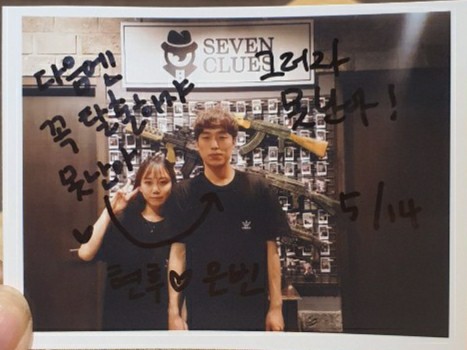 SEVEN
CLUES
다음엔
꼭 탈출하자
못난아
그러자
못난아!
5/14
♥ 은빈